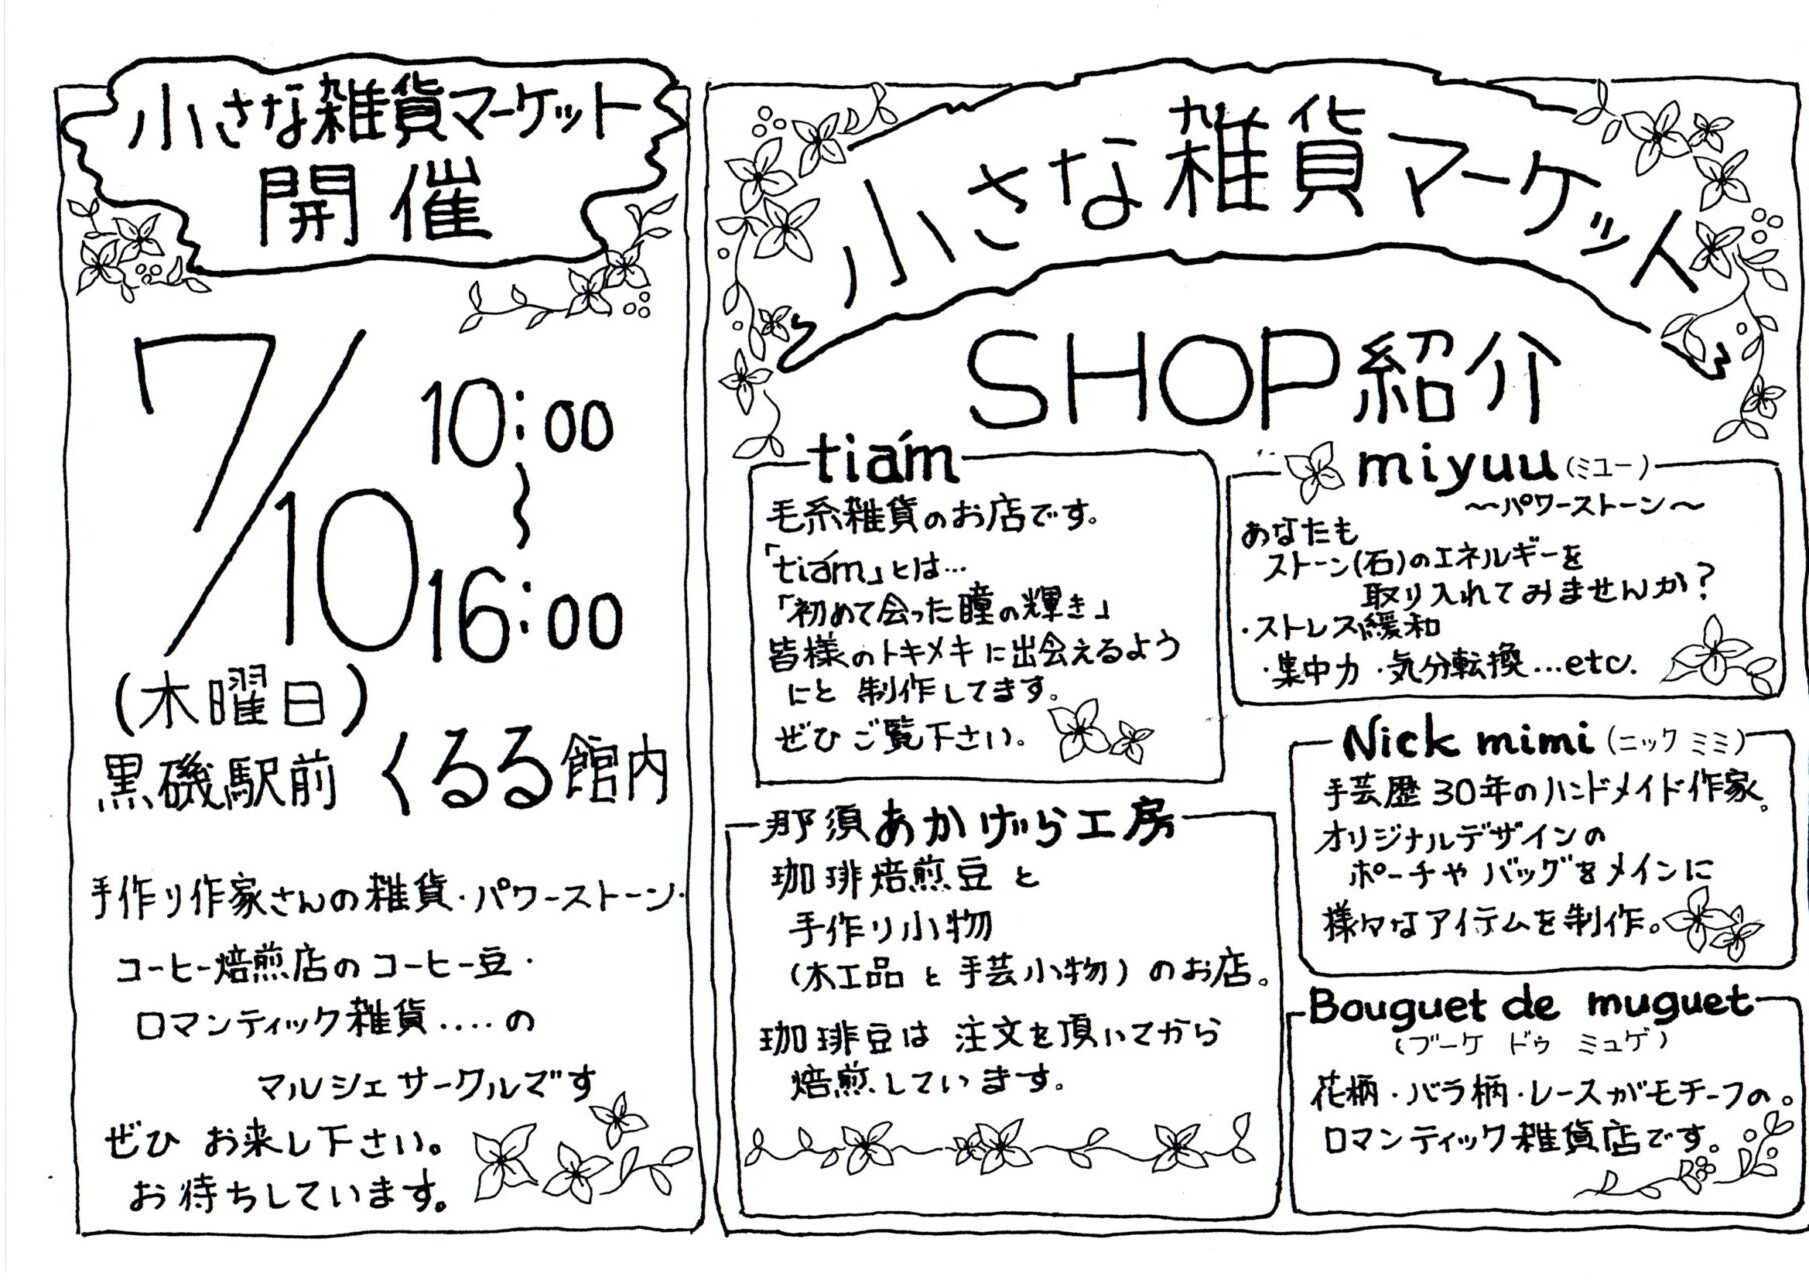 小さな雑貨マーケット
開催
7/10
10:00
〜
16:00
(木曜日)
黒磯駅前 くるる館内
手作り作家さんの雑貨・パワーストーン・
コーヒー焙煎店のコーヒー豆・
ロマンティック雑貨....の
マルシェサークルです
ぜひ お来し下さい。
お待ちしています。
小さな雑貨マーケット
SHOP紹介
tiám
毛糸雑貨のお店です。
「tiám」とは…
「初めて会った瞳の輝き」
皆様のトキメキに出会えるよう
にと 制作してます。
ぜひ ご覧下さい。
miyuu(ミユー)
〜パワーストーン〜
あなたも
ストーン(石)のエネルギーを
取り入れてみませんか?
・ストレス緩和
・集中力・気分転換…etc.
那須あかげら工房
珈琲焙煎豆と
手作り小物
(木工品と手芸小物)のお店。
珈琲豆は 注文を頂いてから
焙煎しています。
Nick mimi(ニック ミミ)
手芸歴30年のハンドメイド作家。
オリジナルデザインの
ポーチや バッグをメインに
様々なアイテムを制作。
Bouguet de muguet
(ブーケ ドゥ ミュゲ)
花柄・バラ柄・レースがモチーフの。
ロマンティック雑貨店です。